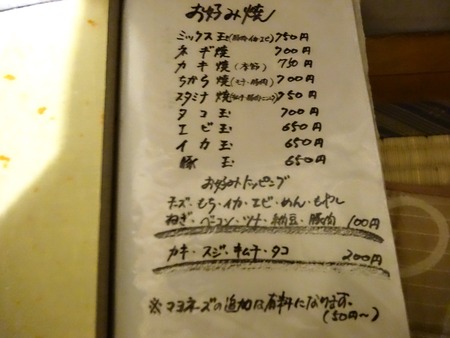 お好み焼
ミックス玉(豚肉・イカ・エビ) 750円
ネギ焼 700円
カキ焼(季節) 750円
ちから焼(モチ・豚肉) 700円
スタミナ焼 750円
タコ玉 700円
エビ玉 650円
イカ玉 650円
豚玉 650円
お好みトッピング
チーズ・もち・イカ・エビ・めん・もやし
ねぎ・ベーコン・ツナ・納豆・豚肉 100円
カキ・スジ・キムチ・タコ 200円
※マヨネーズの追加は有料になります。
(50円〜)